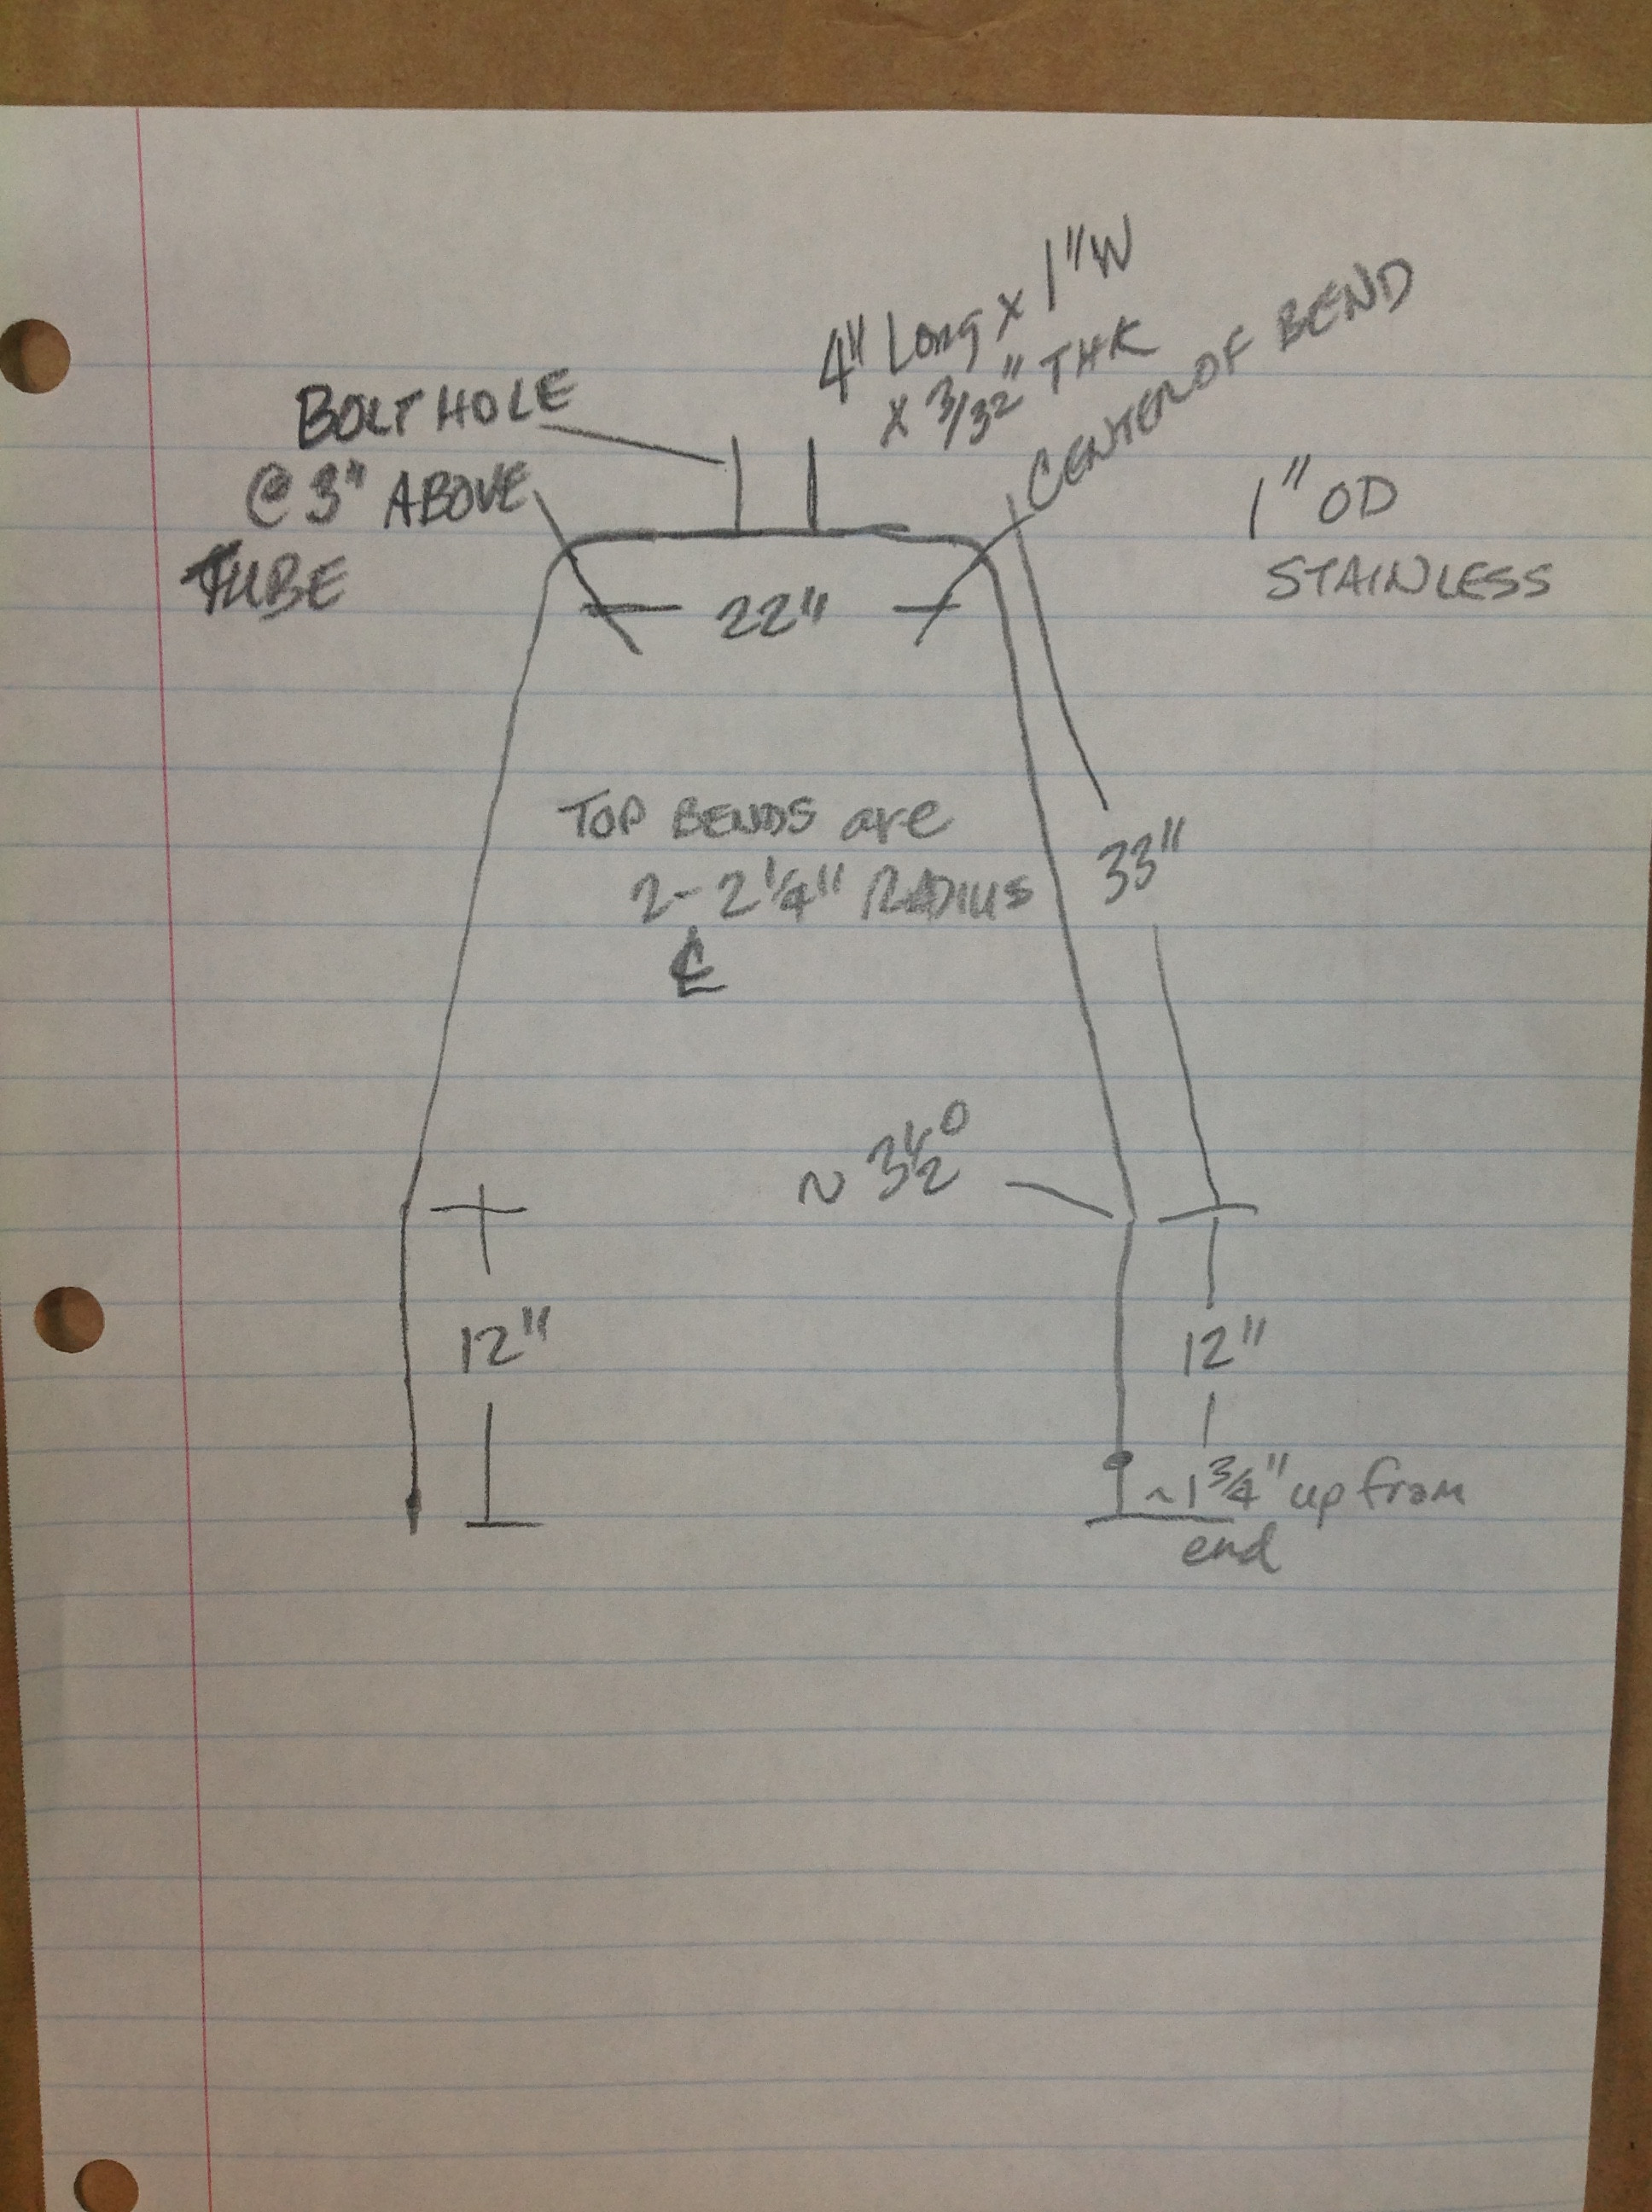 4" Long x 1" W
x 3/32" THK
CENTER OF BEND
BOLT HOLE
@ 3" ABOVE
TUBE
1" OD
STAINLESS
22"
TOP BENDS are
2-2 1/4" RADIUS
℄
33"
~ 3 1/2°
12"
12"
~1 3/4" up from
end